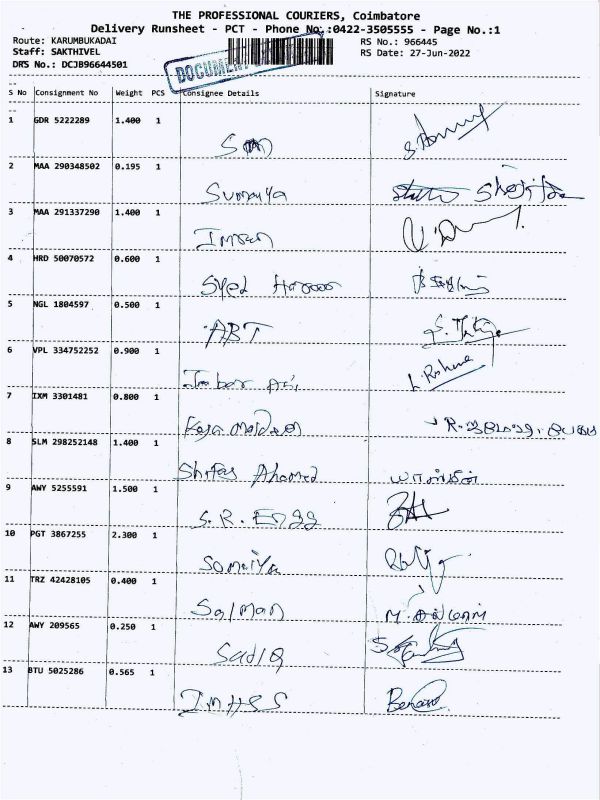 THE PROFESSIONAL COURIERS, Coimbatore
Delivery Runsheet - PCT - Phone No.:0422-3505555 - Page No.:1
Route: KARUMBUKADAI RS No.: 966445
Staff: SAKTHIVEL RS Date: 27-Jun-2022
DRS No.: DCJB96644501
DOCUMENT
S No Consignment No Weight PCS Consignee Details Signature
1 GDR 5222289 1.400 1
2 MAA 290348502 0.195 1
Sumaiya
3 MAA 291337290 1.400 1
4 HRD 50070572 0.600 1
Syed
5 NGL 1804597 0.500 1
ABT
6 VPL 334752252 0.900 1
7 IXM 3301481 0.800 1
8 SLM 298252148 1.400 1
Ahamed யாஸ்மின்
9 AWY 5255591 1.500 1
S.R. Engg
10 PGT 3867255 2.300 1
Somaiya
11 TRZ 42428105 0.400 1
Salman
12 AWY 209565 0.250 1
Sadiq
13 BTU 5025286 0.565 1
IMHSS